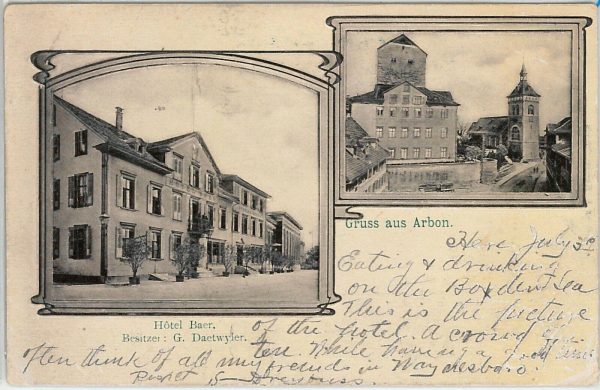 Gruss aus Arbon.
Hôtel Baer.
Besitzer: G. Daetwyler.
Here July
Eating & drinking
on the Boden Sea
This is the picture
of the hotel. A crowd of
ten. While having a good time
often think of all my friends in Waynesboro.